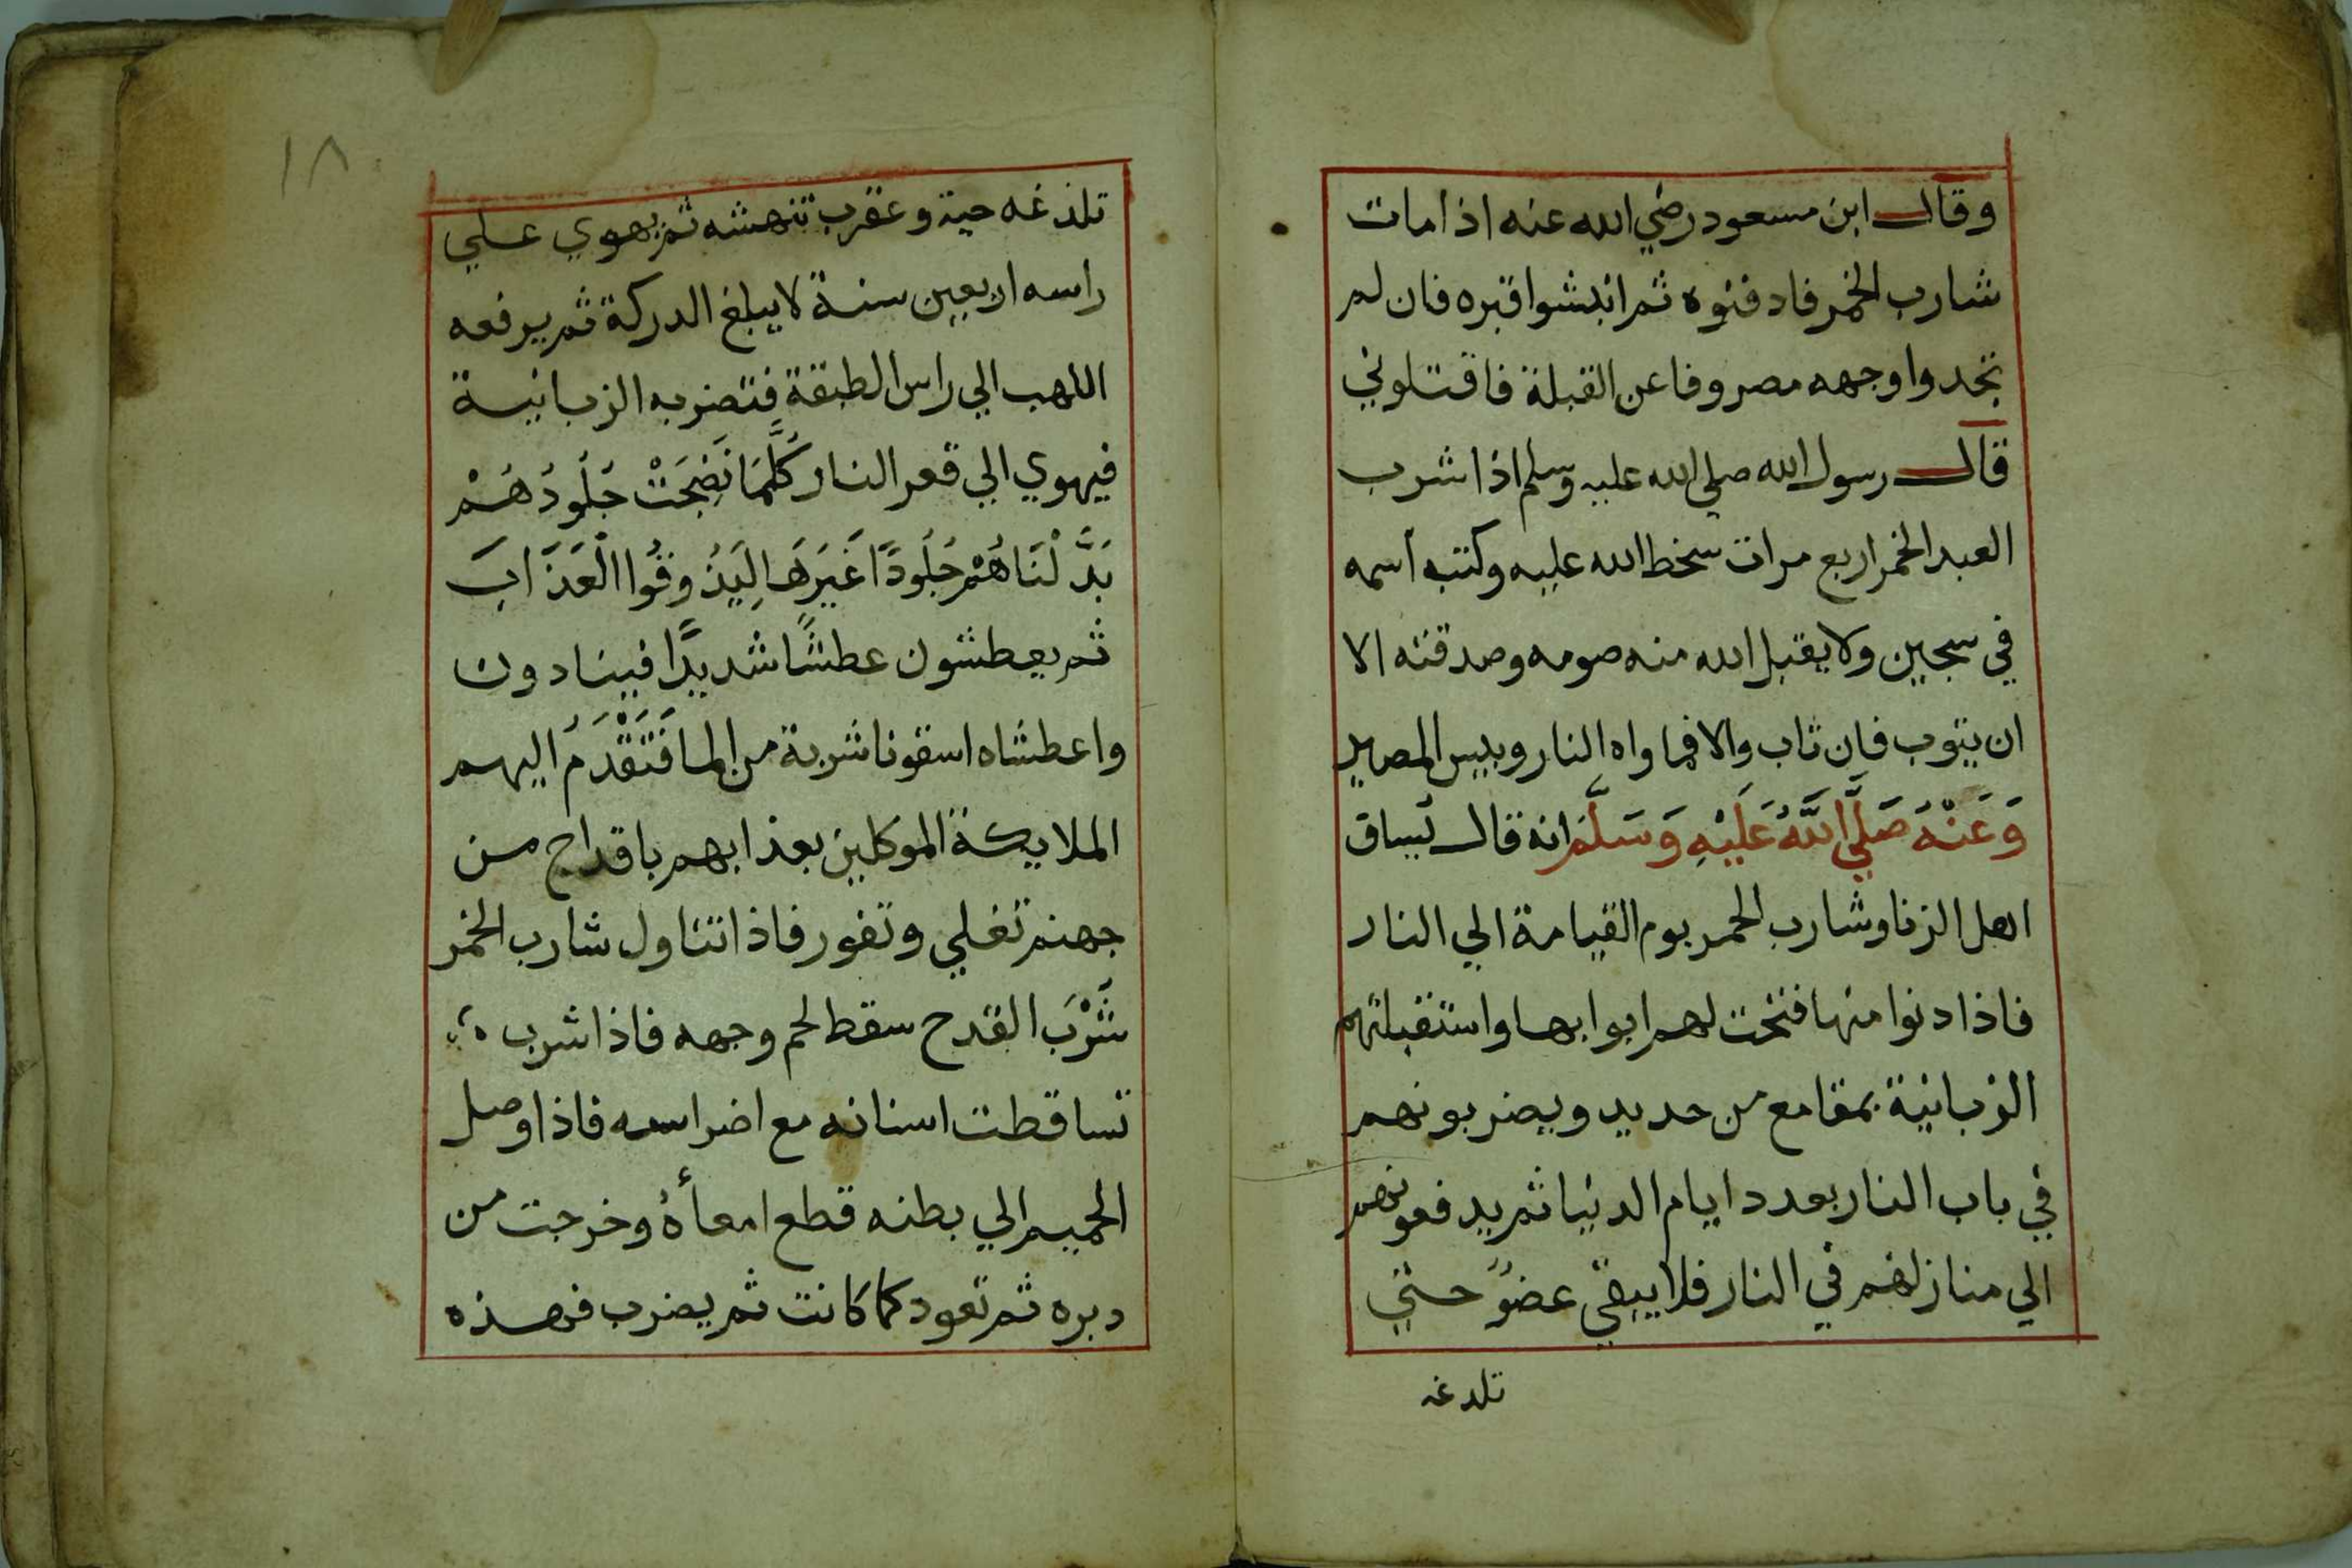 وقال ابن مسعود رضي الله عنه اذا مات
شارب الخمر فادفنوه ثم انبشوا قبره فان لم
تجدوا وجهه مصروفا عن القبلة فاقتلوني
قال رسول الله صلي الله عليه وسلم اذا شرب
العبد الخمر اربع مرات سخط الله عليه وكتب اسمه
في سجين ولا يقبل الله منه صومه وصدقته الا
ان يتوب فان تاب والا فماواه النار وبيس المصير
وَعَنْهُ صَلَّي اللَّهُ عَلَيْهِ وَسَلَّمَ انه قال يساق
اهل الزنا وشارب الخمر يوم القيامة الي النار
فاذا دنوا منها فتحت لهم ابوابها واستقبلتهم
الزبانية بمقامع من حديد ويضربونهم
في باب النار بعدد ايام الدنيا ثم يدفعونهم
الي منازلهم في النار فلا يبقي عضوً حتي
تلدغه
١٨
تلذغه حية وعقرب تنهشه ثم يهوي علي
راسه اربعين سنة لا يبلغ الدركة ثم يرفعه
اللهب الي راس الطبقة فتضربه الزبانية
فيهوي الي قعر النار كُلَّمَا نَضِجَتْ جُلُودُهُمْ
بَدَّلْنَاهُمْ جُلُودًا غَيْرَهَا لِيَذُوقُوا الْعَذَابَ
ثم يعطشون عطشًا شديدًا فينادون
واعطشاه اسقونا شربة من الما فَتَقْدَمُ اليهم
الملايكة الموكلين بعذابهم باقداح من
جهنم تغلي وتفور فاذا تناول شارب الخمر
شَرْبَ القدح سقط لحم وجهه فاذا شرب
تساقطت اسنانه مع اضراسه فاذا وصل
الحميم الي بطنه قطع امعأهُ وخرجت من
دبره ثم تعود كما كانت ثم يضرب فهذه